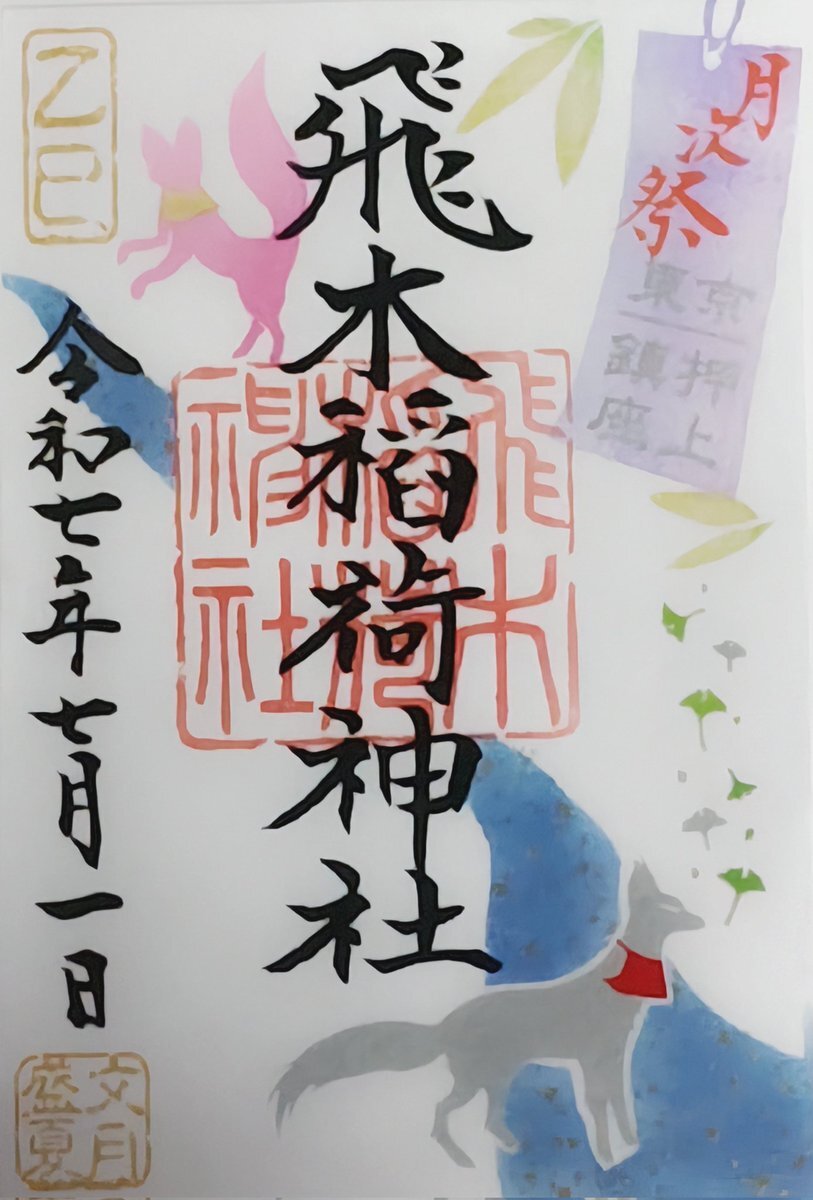 月次祭
東京
押上
鎮座
飛木稲荷神社
飛木
稲荷
神社
令和七年七月一日
乙巳
文月
盛夏